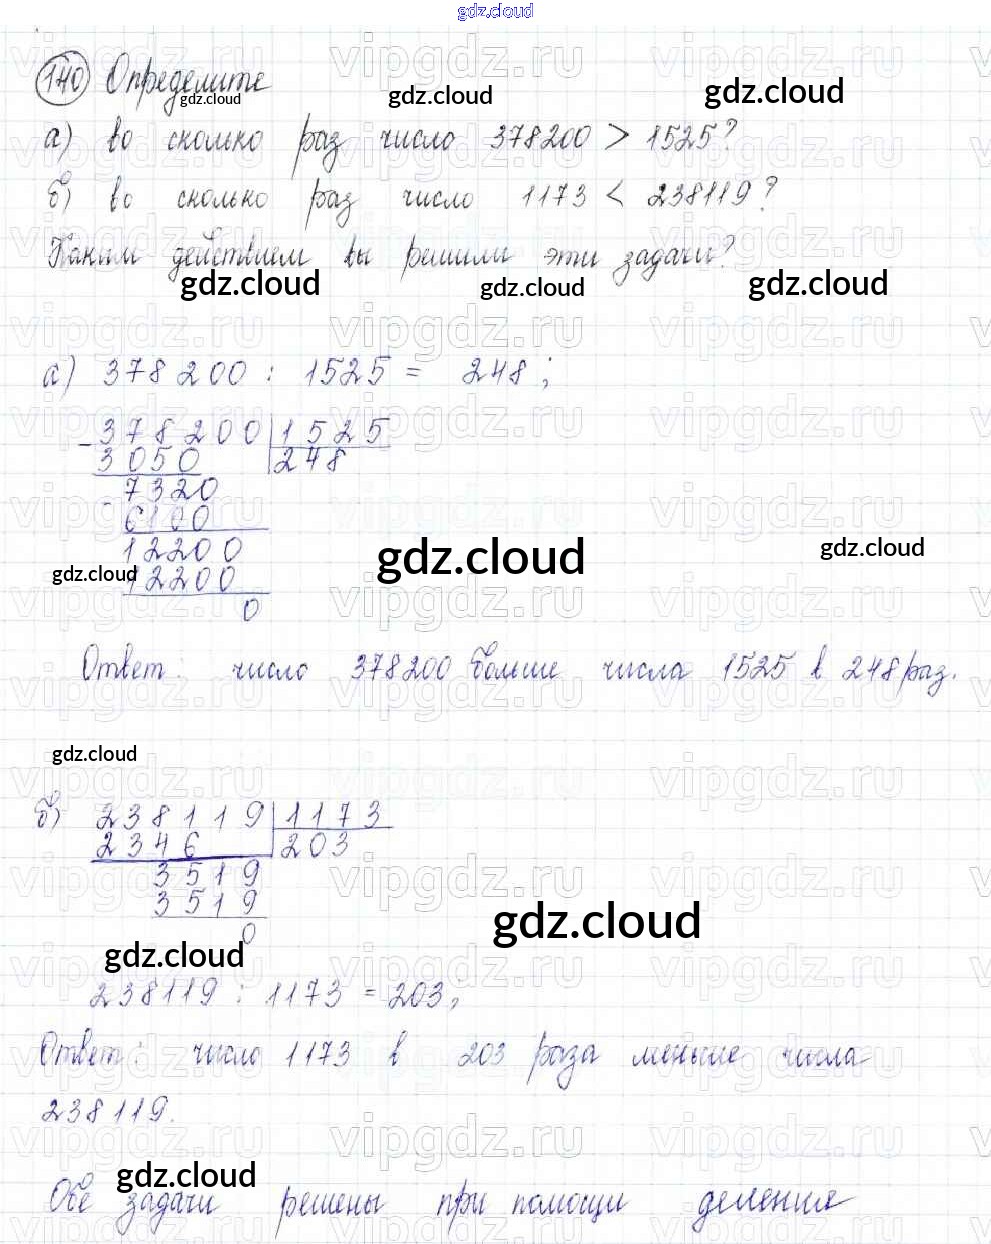 gdz.cloud
140 Определите
gdz.cloud gdz.cloud gdz.cloud
а) во сколько раз число 378200 > 1525?
б) во сколько раз число 1173 < 238119?
Каким действием вы решили эти задачи?
gdz.cloud gdz.cloud gdz.cloud
а) 378200 : 1525 = 248;
- 378200 | 1525
3050 | 248
- 7320
6100
12200
gdz.cloud gdz.cloud
gdz.cloud 12200
0
Ответ: число 378200 больше числа 1525 в 248 раз.
gdz.cloud
б) 238119 | 1173
2346 | 203
3519
3519
gdz.cloud
0
gdz.cloud
238119 : 1173 = 203;
Ответ: число 1173 в 203 раза меньше числа
238119.
gdz.cloud
Обе задачи решены при помощи деления
vipgdz.ru